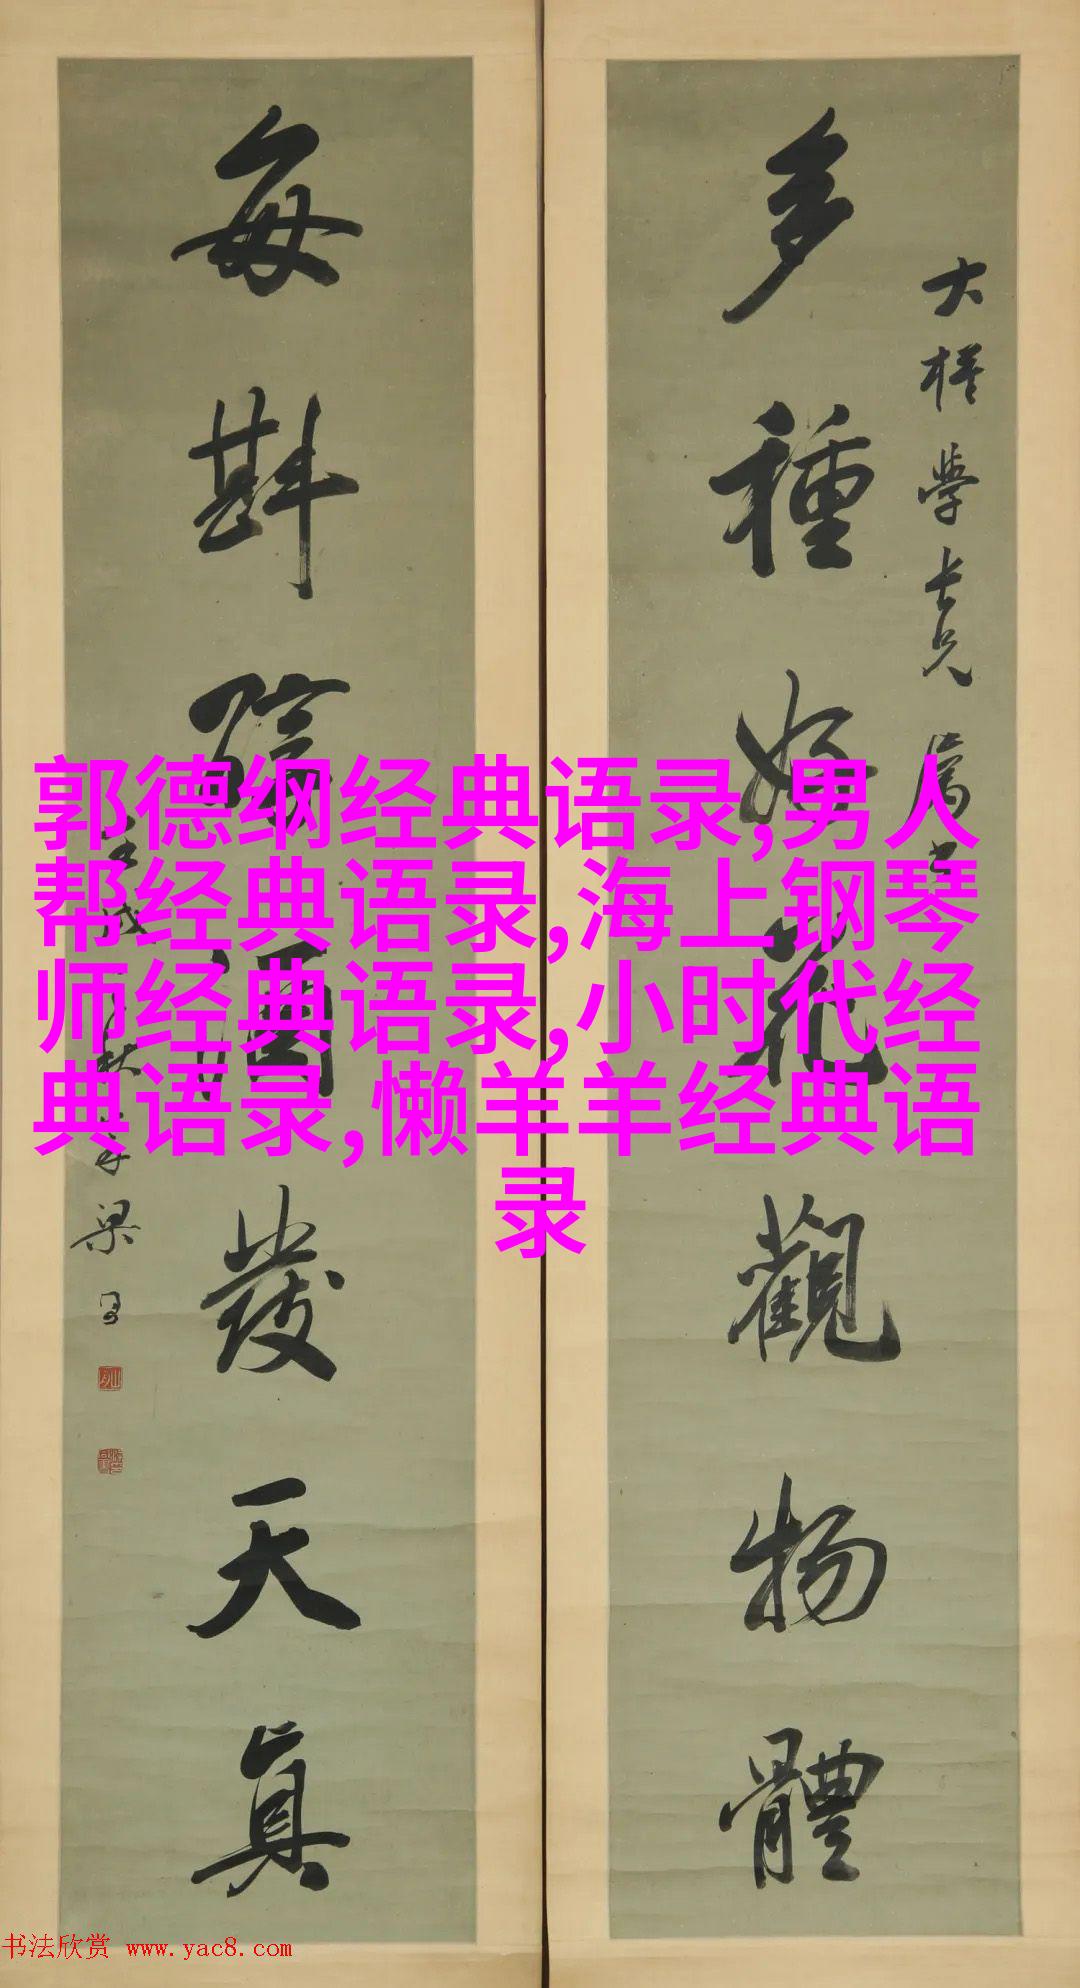 多種好花觀物體
大樁學士兄屬
每斟酒發天真
梁
郭德纲经典语录,男人
帮经典语录,海上钢琴
师经典语录,小时代经
典语录,懒羊羊经典语
录
书法欣赏 www.yac8.com